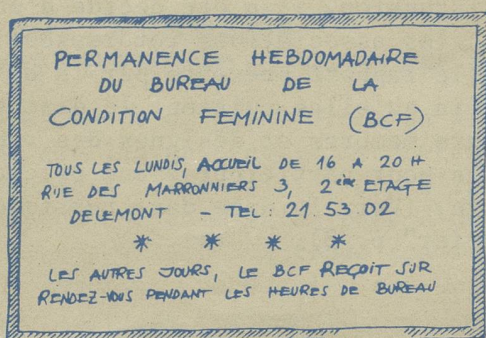 PERMANENCE HEBDOMADAIRE
DU BUREAU DE LA
CONDITION FEMININE (BCF)
TOUS LES LUNDIS, ACCUEIL DE 16 A 20 H
RUE DES MARRONNIERS 3, 2ème ETAGE
DELEMONT - TEL: 21.53.02
* * * *
LES AUTRES JOURS, LE BCF REÇOIT SUR
RENDEZ-VOUS PENDANT LES HEURES DE BUREAU